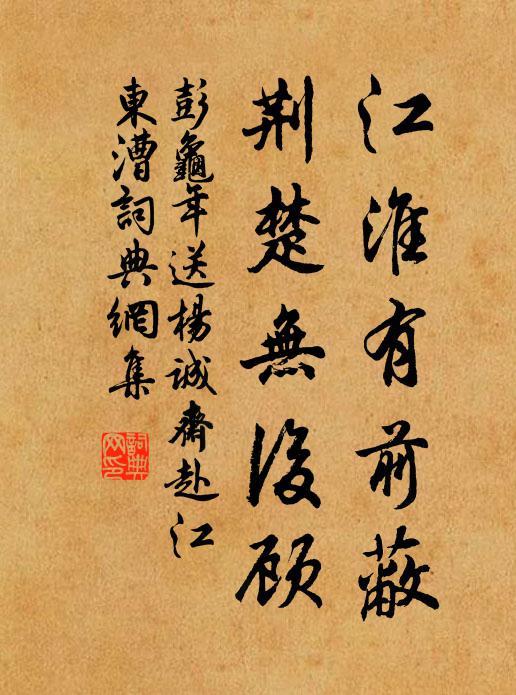 江淮有前蔽
荆楚無後顧
彭龜年送楊誠齋赴江
東漕詞典網集
詞典網印